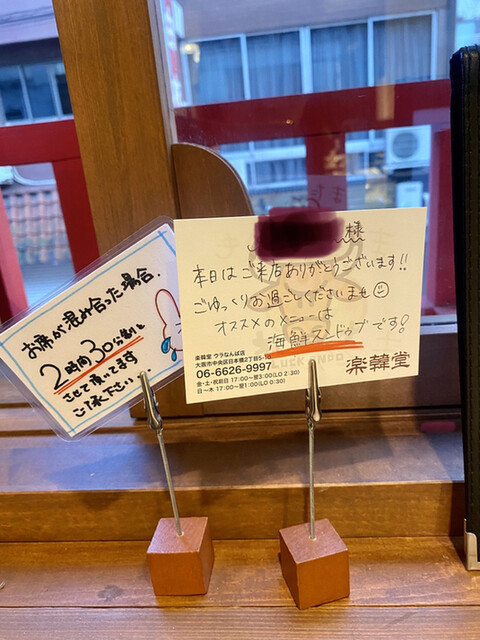 お席が混み合った場合、
2時間30分制と
させて頂いてます
ご了承ください
様
本日はご来店ありがとうございます!!
ごゆっくりお過ごしくださいませ
オススメのメニューは
海鮮スンドゥブです!
楽韓堂 ウラなんば店
大阪市中央区日本橋2丁目5-10
06-6626-9997
金・土・祝前日 17:00〜翌3:00(LO 2:30)
日〜木 17:00〜翌1:00(LO 0:30)
楽韓堂